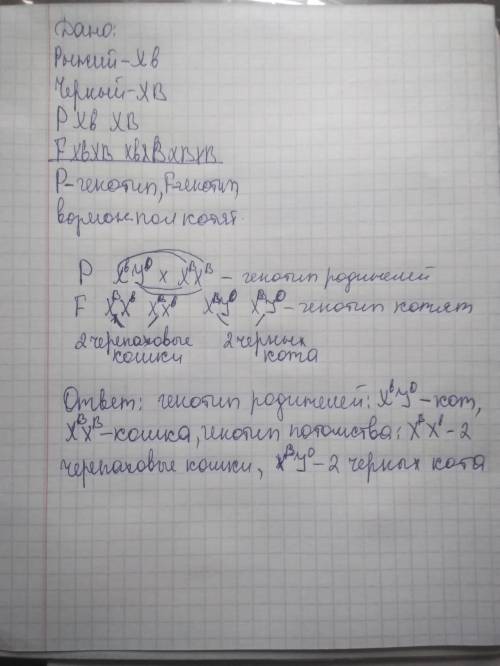 Дано:
Рыжий - Xb
Черный - XB
P Xb XB
F XbXB XbXB XB XB
P - генотип, F - генотип,
возмож. пол котят.
P XᵇY⁰ x XᴮXᴮ - генотип родителей
F XᴮXᵇ XᴮXᵇ XᴮY⁰ XᴮY⁰ - генотип котят
2 черепаховые 2 черных
кошки кота
Ответ: генотип родителей: XᵇY⁰ - кот,
XᴮXᴮ - кошка, генотип потомства: XᴮXᵇ - 2
черепаховые кошки, XᴮY⁰ - 2 черных кота